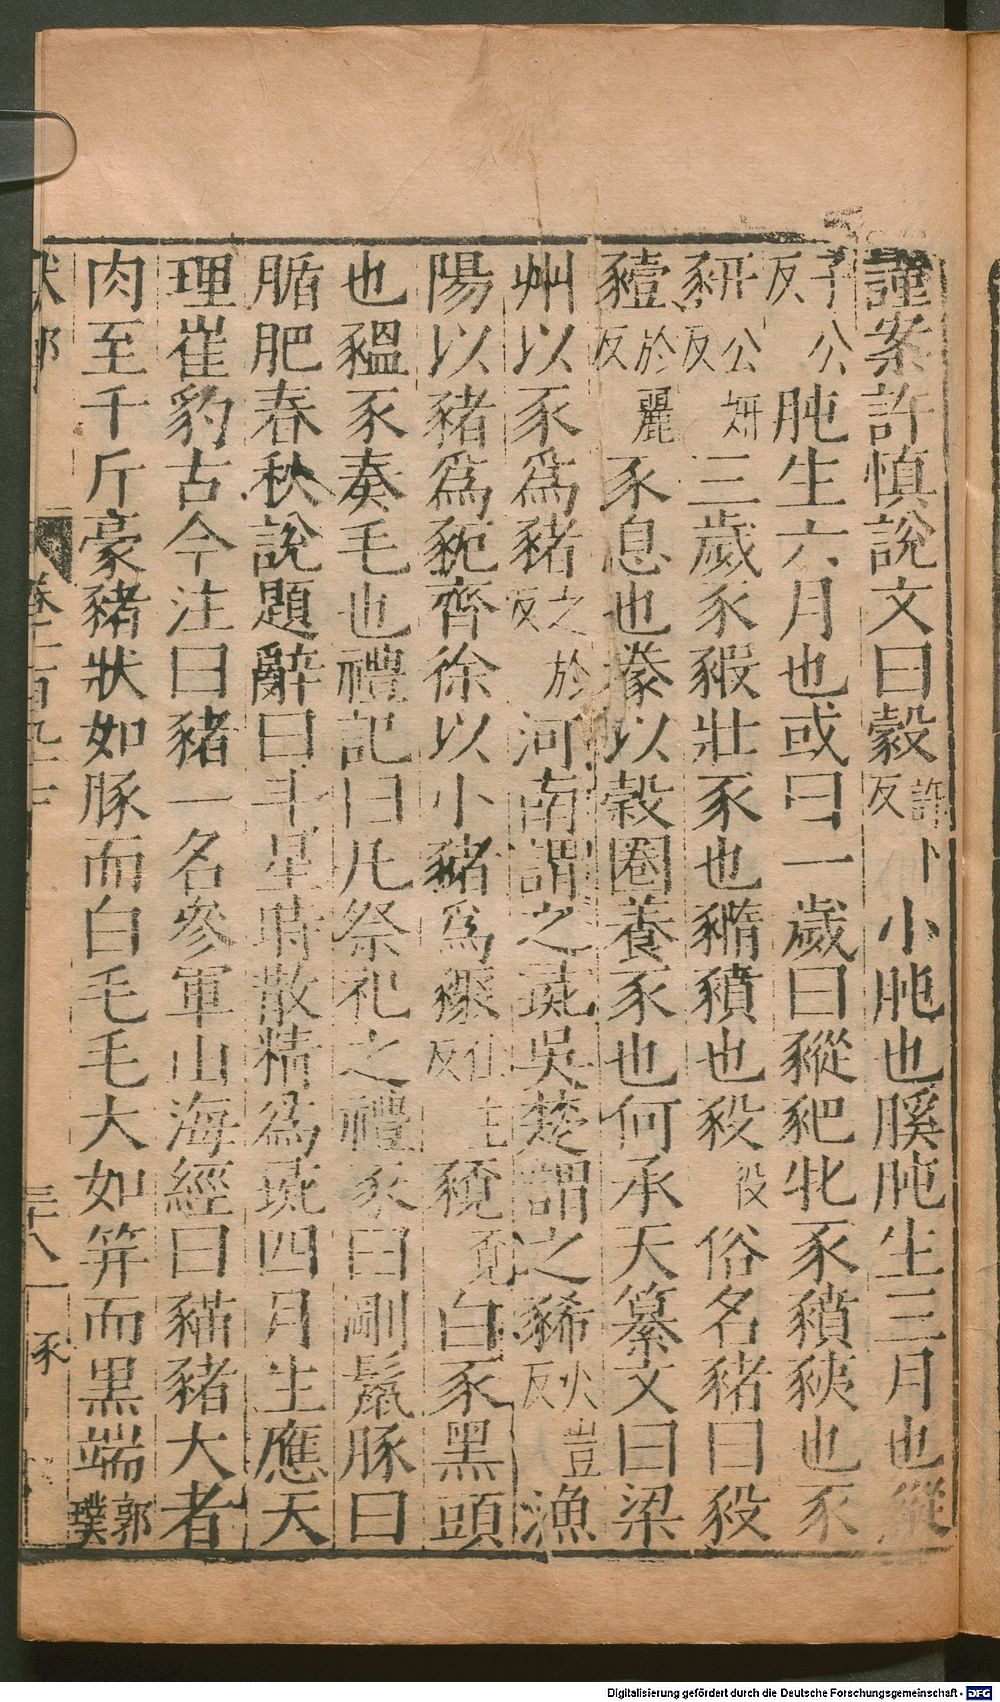 謹案許慎說文曰豰許卜反小肫也䐁肫生三月也豵
子公反肫生六月也或曰一歲曰豵豝牝豕豶䝐也豕
豜公妍反三歲豕豭壯豕也䝐豶也豛役俗名豬曰豛
豷於麗反豕息也豢以穀圈養豕也何承天纂文曰梁
州以豕為豬之於反河南謂之彘吳楚謂之豨火豈反漁
陽以豬為豝齊徐以小豬為䝒仕主反䝕白豕黑頭
也豱豕奏毛也禮記曰凡祭祀之禮豕曰剛鬛豚曰
腯肥春秋說題辭曰斗星時散精為彘四月生應天
理崔豹古今注曰豬一名參軍山海經曰豬大者
肉至千斤豪豬狀如豚而白毛毛大如笄而黑端郭璞
獸部
卷二百九十七
三十八
豕
Digitalisierung gefördert durch die Deutsche Forschungsgemeinschaft - DFG